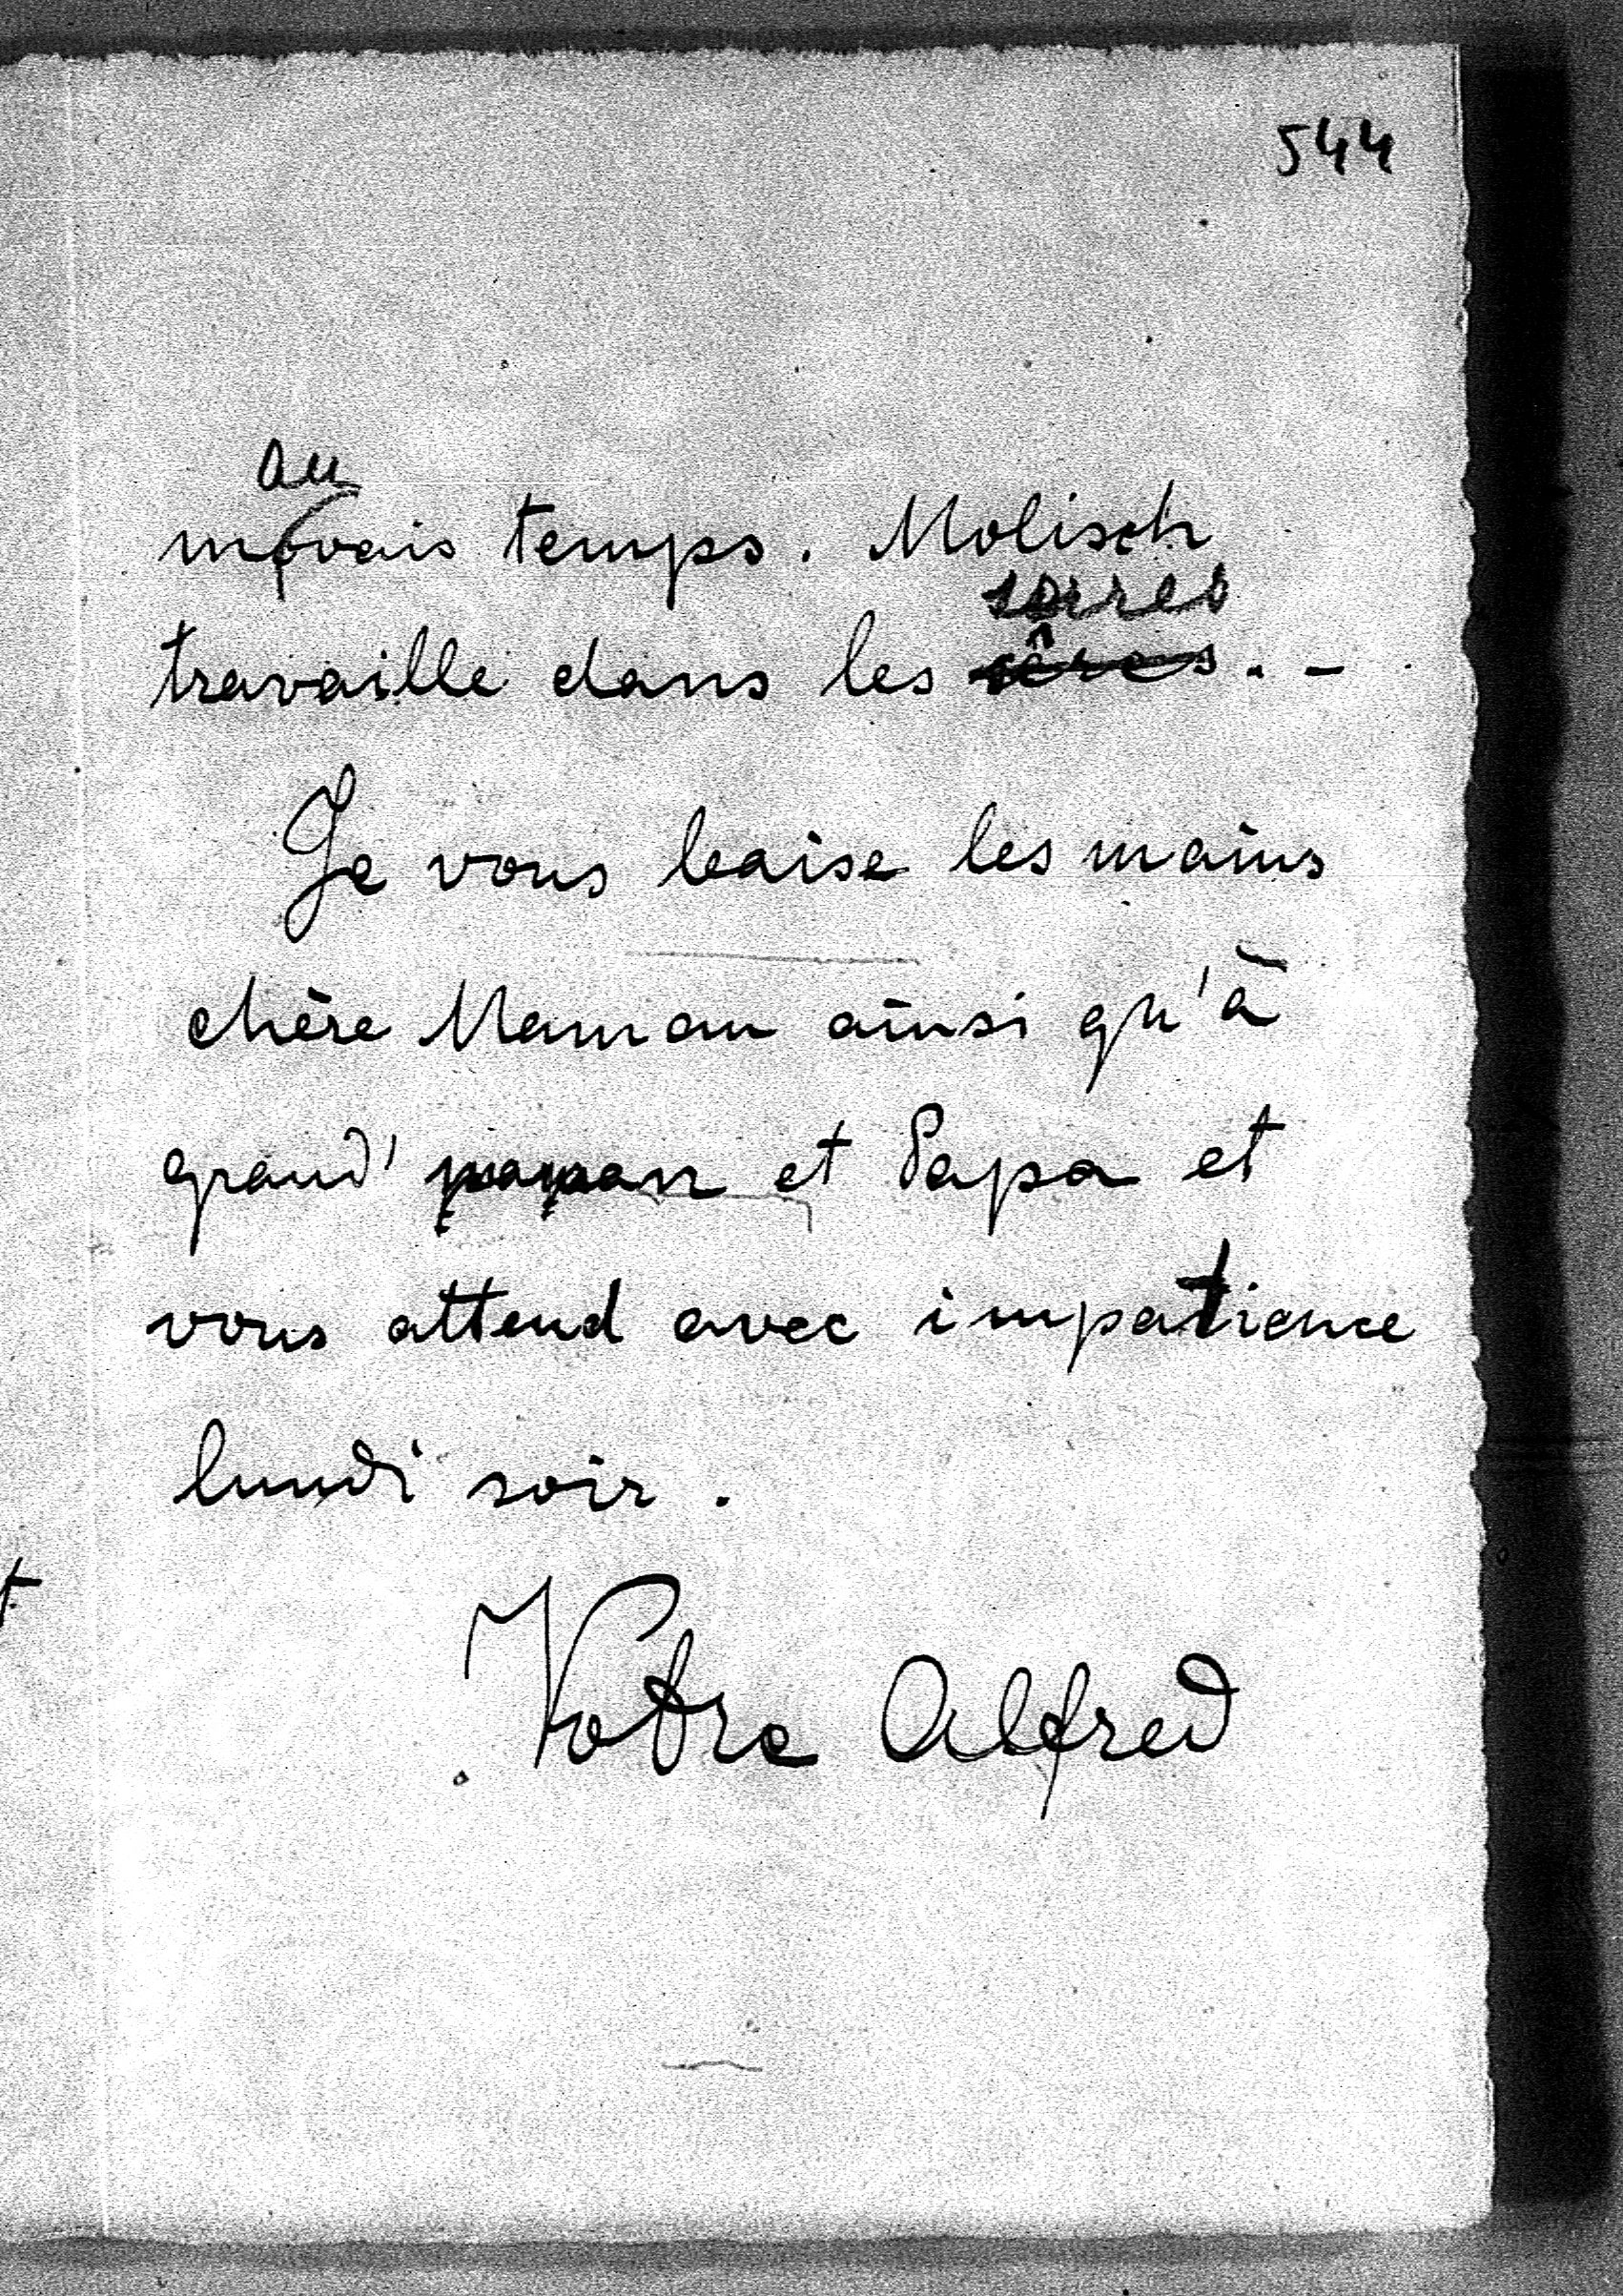 544
au
movais temps. Molisch
soires
travaille dans les sêres. -
Je vous baise les mains
chère Maman ainsi qu'à
grand' papan et Papa et
vous attend avec impatience
lundi soir.
Votre Alfred